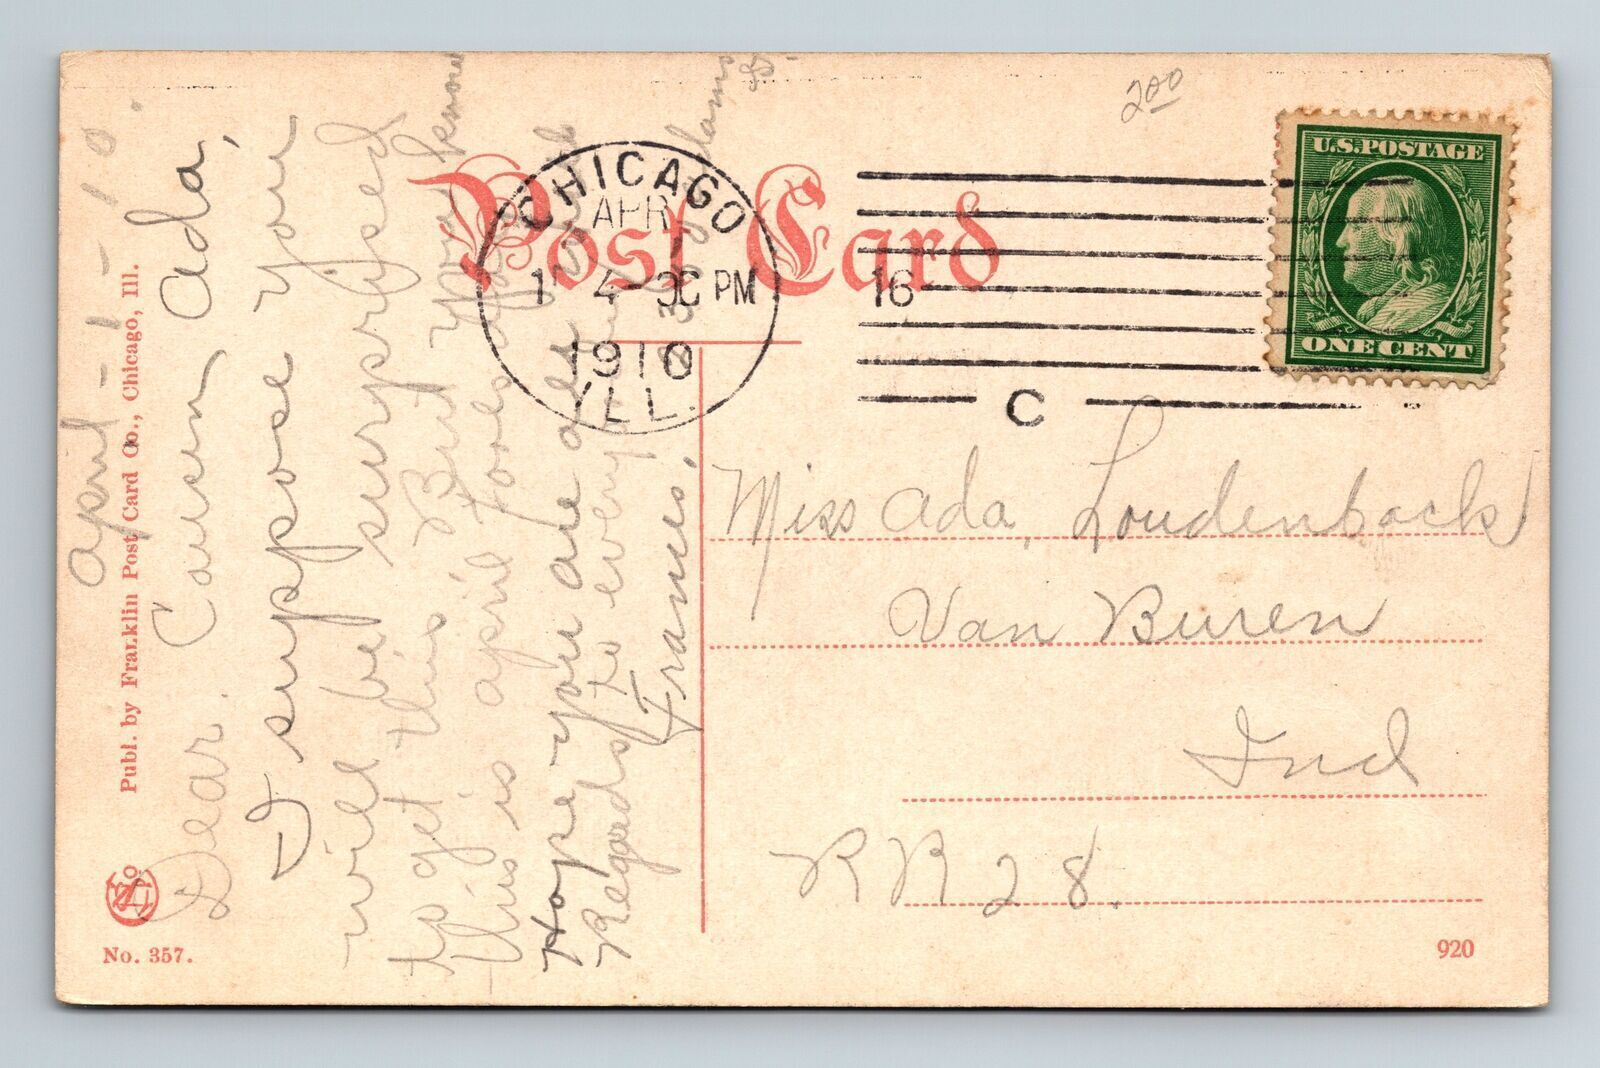 200
Post Card
U.S. POSTAGE
ONE CENT
CHICAGO
APR
1
4-30 PM
1910
ILL.
16
C
April - 1 - 10.
Dear Cousin Ada,
I suppose you
will be surprised
to get this But you know
this is april fools
Hope you are all
Regards to everybody
Frances.
Miss Ada Loudenback
Van Buren
Ind
R R 28.
Publ. by Franklin Post Card Co., Chicago, Ill.
No. 357.
920